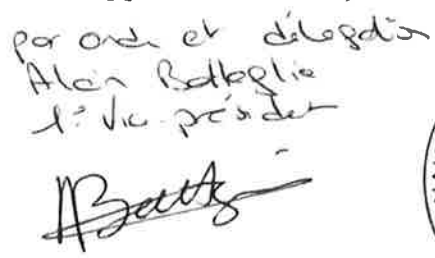 par ordre et délégation
Alain Battaglia
1er Vice-président